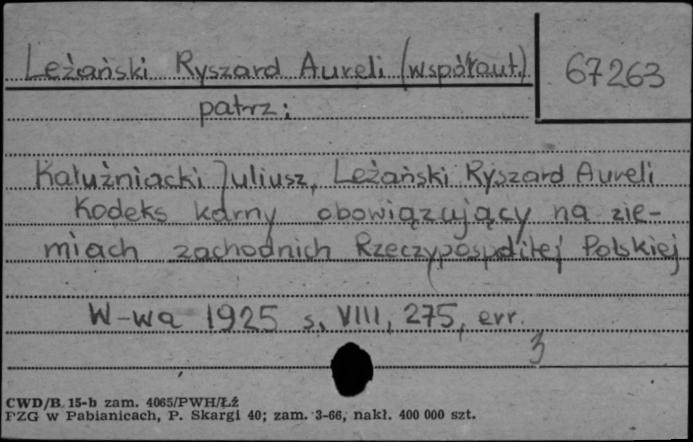 Leżański Ryszard Aureli (współaut.)
67263
patrz:
Kałużniacki Juliusz, Leżański Ryszard Aureli
Kodeks karny obowiązujący na zie-
miach zachodnich Rzeczypospolitej Polskiej
W-wa 1925 s. VIII, 275, err.
3
CWD/B. 15-b zam. 4065/PWH/Łź
PZG w Pabianicach, P. Skargi 40; zam. 3-66, nakł. 400 000 szt.